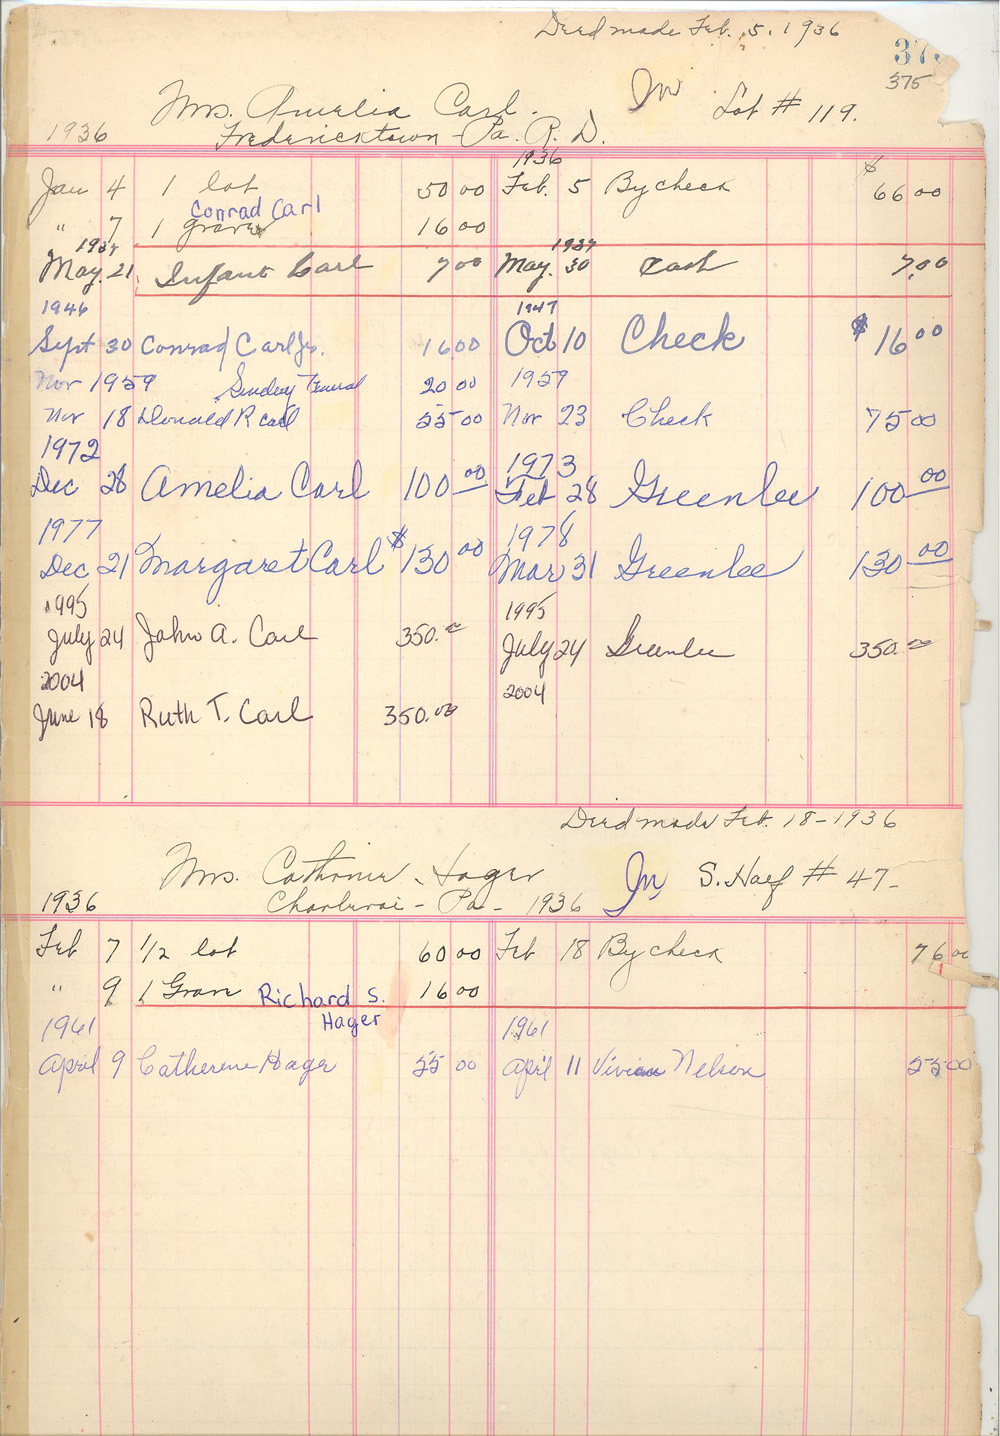 Deed made Feb. 5. 1936
375
375
Mrs. Amelia Carl. In Lot # 119.
1936 Fredericktown - Pa. R. D.
1936
Jan 4 1 lot 50 00 Feb. 5 By check $ 66 00
Conrad Carl
" 7 1 grave 16 00
1937 1937
May. 21 Infant Carl 7 00 May. 30 Cash 7.00
1946 1947
Sept 30 Conrad Carl Jr. 16 00 Oct 10 Check $ 16 00
Nov 1959 Sunday Funeral 20 00 1959
Nov 18 Donald R Carl 55 00 Nov 23 Check 75 00
1972 1973
Dec 28 Amelia Carl 100 00 Feb 28 Greenlee 100 00
1977 1978
Dec 21 Margaret Carl $ 130 00 Mar 31 Greenlee 130 00
1995 1995
July 24 John A. Carl 350.00 July 24 Greenlee 350.00
2004 2004
June 18 Ruth T. Carl 350.00
Deed made Feb. 18 - 1936
Mrs. Catherine Hager In S. Half # 47-
1936 Charleroi - Pa - 1936
Feb 7 1/2 lot 60 00 Feb 18 By check 76 00
" 9 1 Grave Richard S. 16 00
Hager
1961 1961
April 9 Catherene Hager 55 00 April 11 Vivian Nelson 55 00